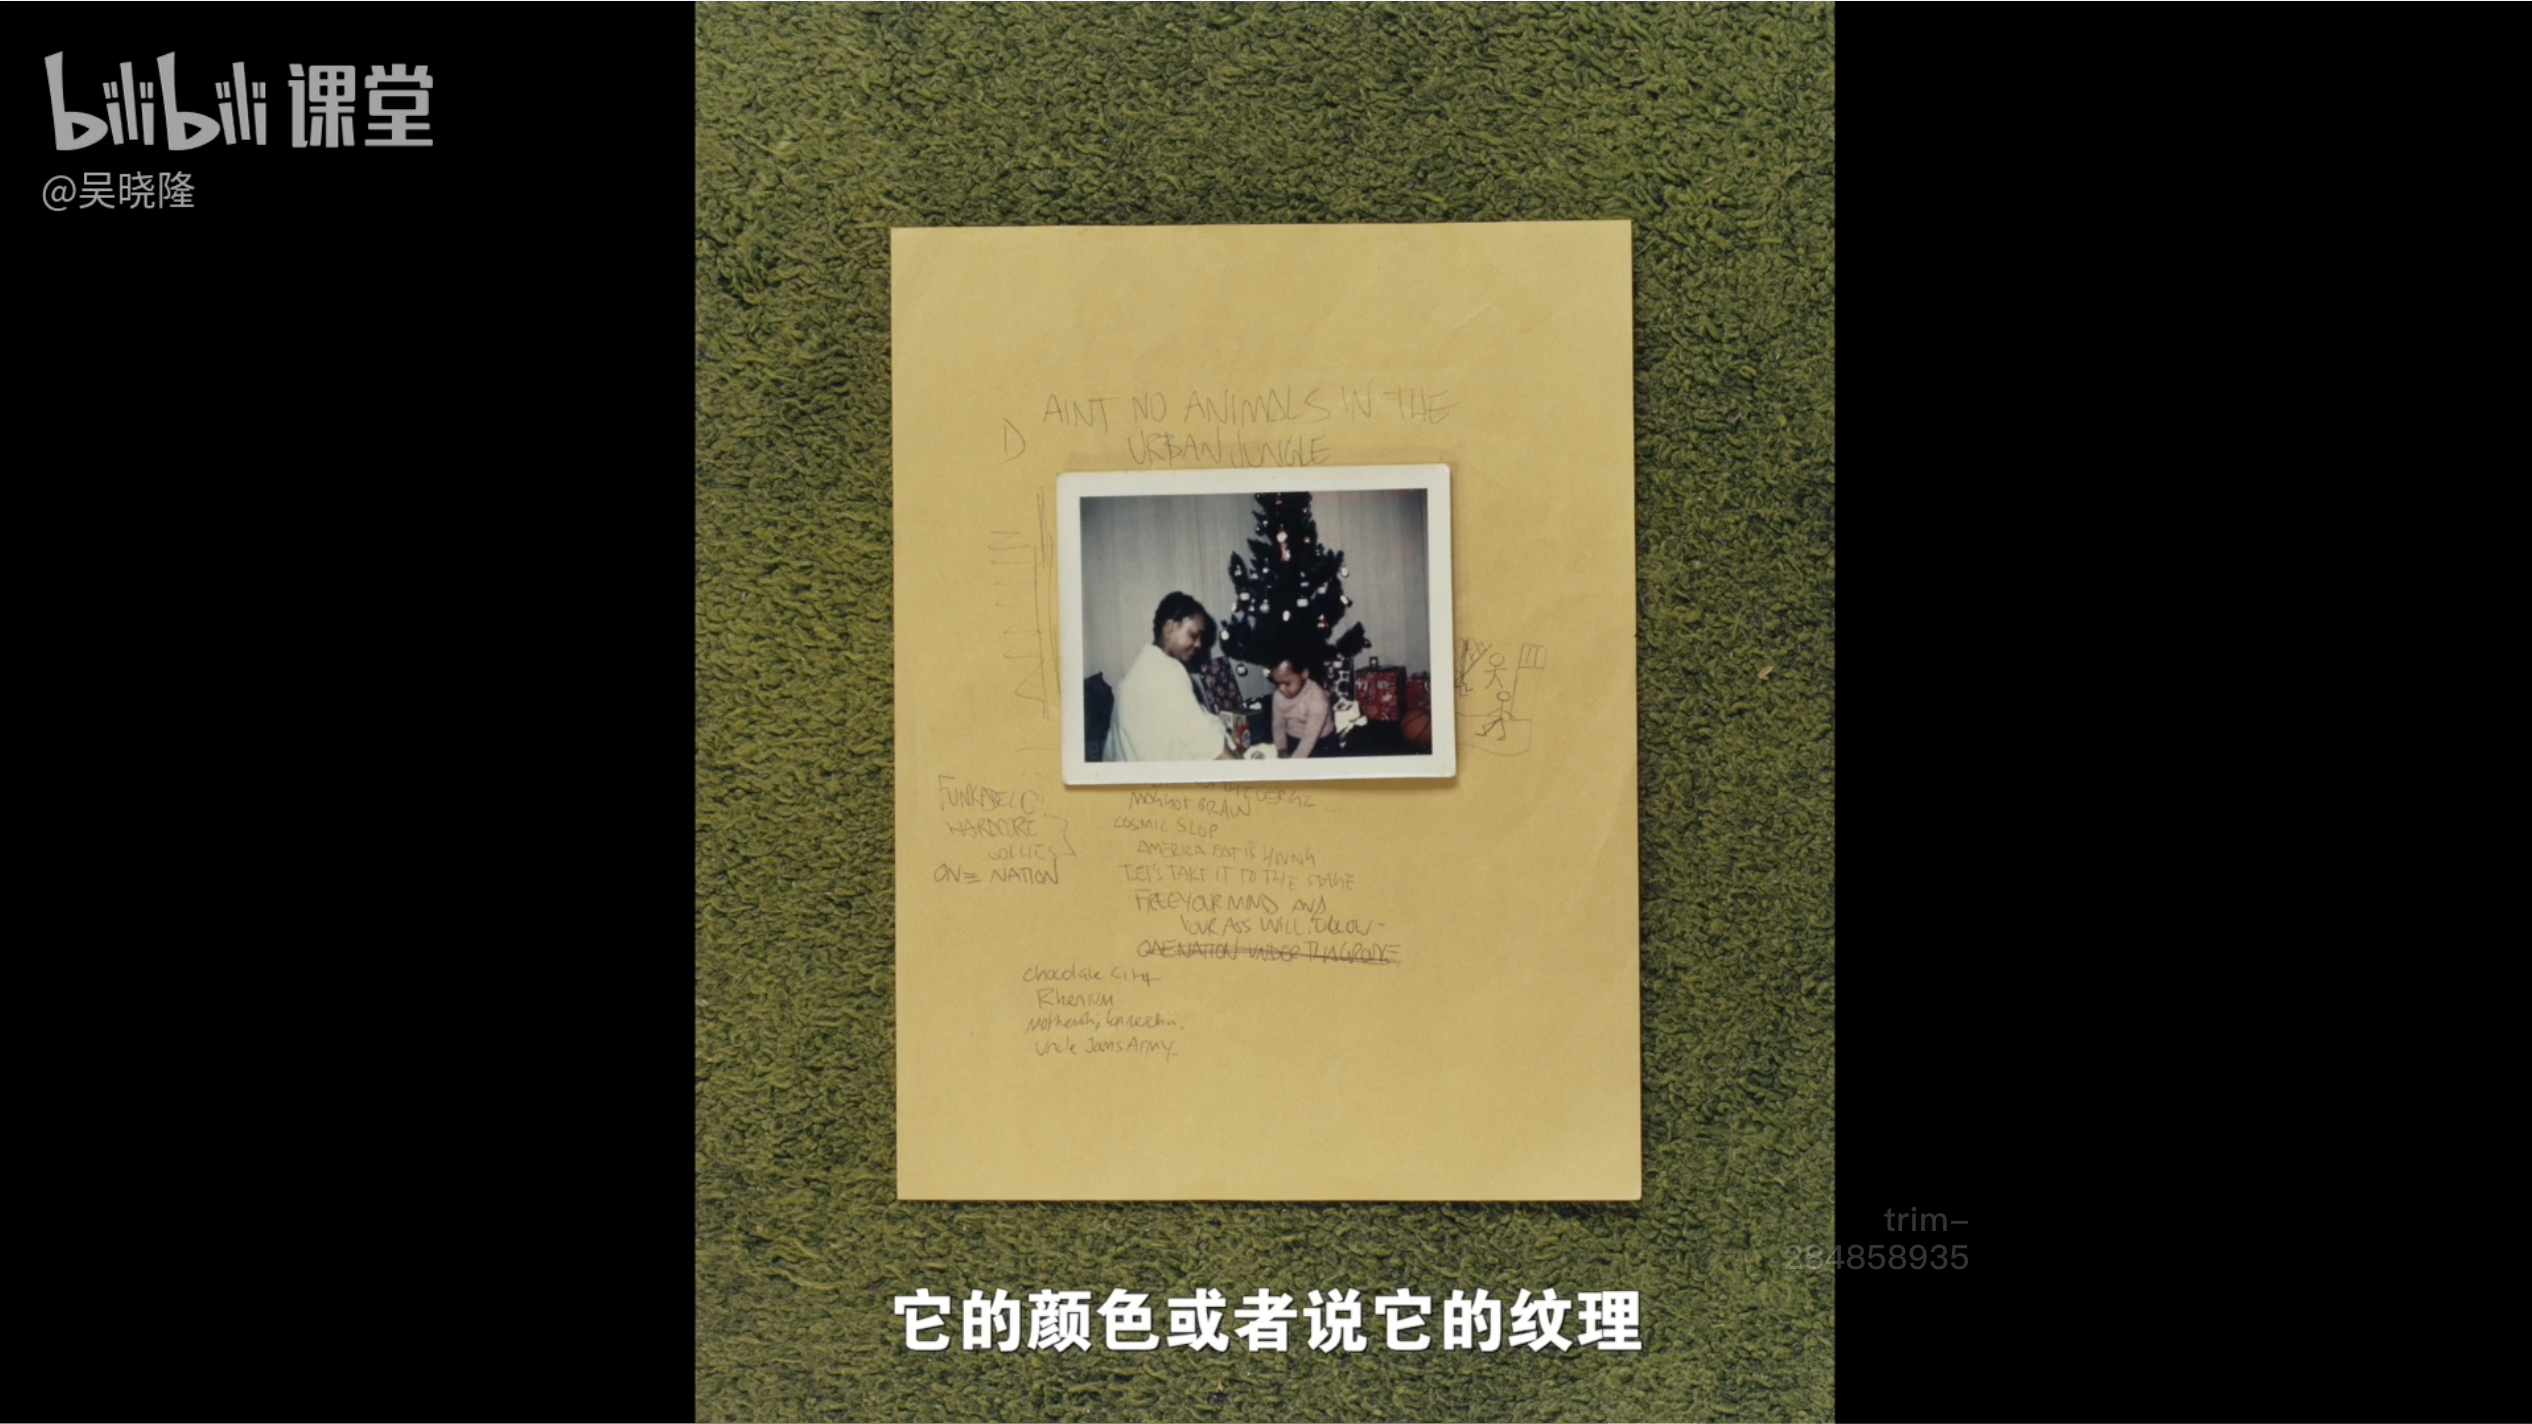 bilibili 课堂
@吴晓隆
AINT NO ANIMALS IN THE
D
URBAN JUNGLE
FUNKADELIC
MAGGOT BRAIN
HARDCORE
COSMIC SLOP
JOLLIES
AMERICA EAT ITS YOUNG
ONE NATION
LET'S TAKE IT TO THE STAGE
FREE YOUR MIND AND
YOUR ASS WILL FOLLOW-
ONE NATION UNDER THA GROOVE
Chocolate City
Rhenium
Mothership Connection.
Uncle Jams Army.
trim-
284858935
它的颜色或者说它的纹理